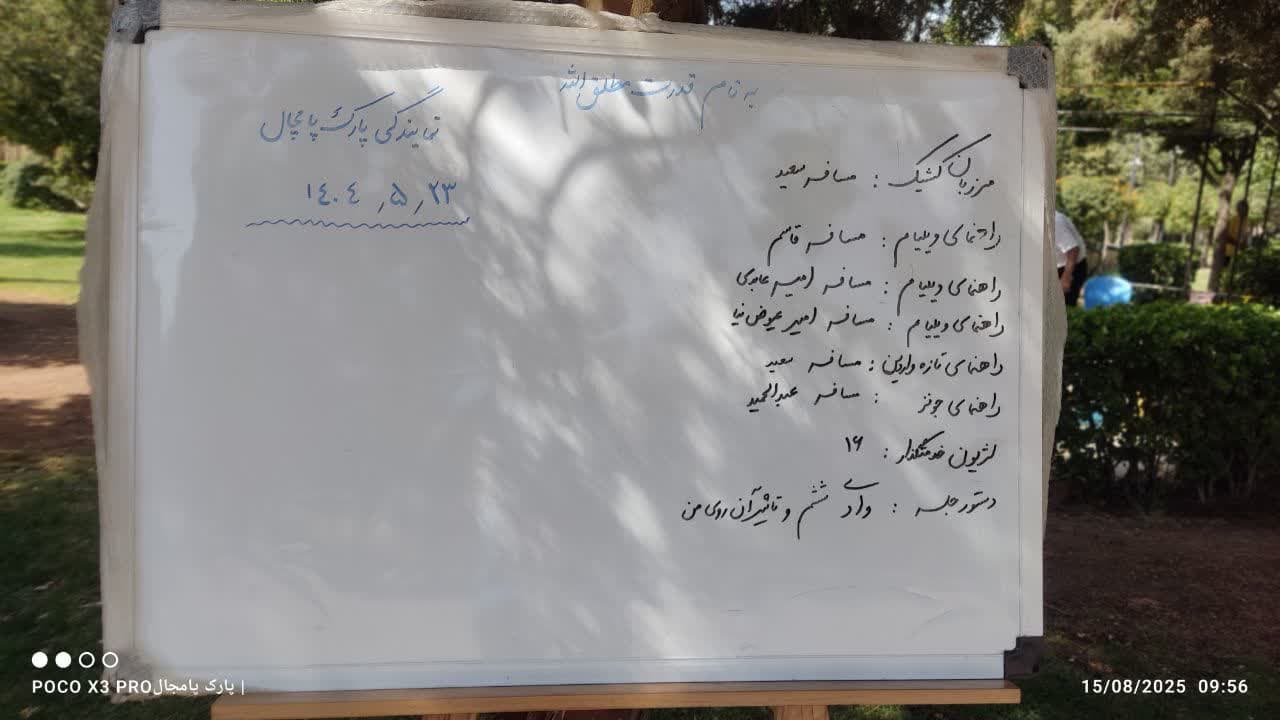 به نام قدرت مطلق الله
نمایندگی پارک پامچال
۱۴۰۴٫۵٫۲۳
مرزبان کشیک : مسافر سعید
راهنمای ویلیام : مسافر قاسم
راهنمای ویلیام : مسافر امیر عابدی
راهنمای ویلیام : مسافر امیر عیوض نیا
راهنمای تازه واردین : مسافر سعید
راهنمای جونز : مسافر عبدالحمید
لژیون خدمتگذار : ۱۶
دستور جلسه : وادی ششم و تاثیر آن روی من
POCO X3 PRO | پارک پامجال
15/08/2025 09:56